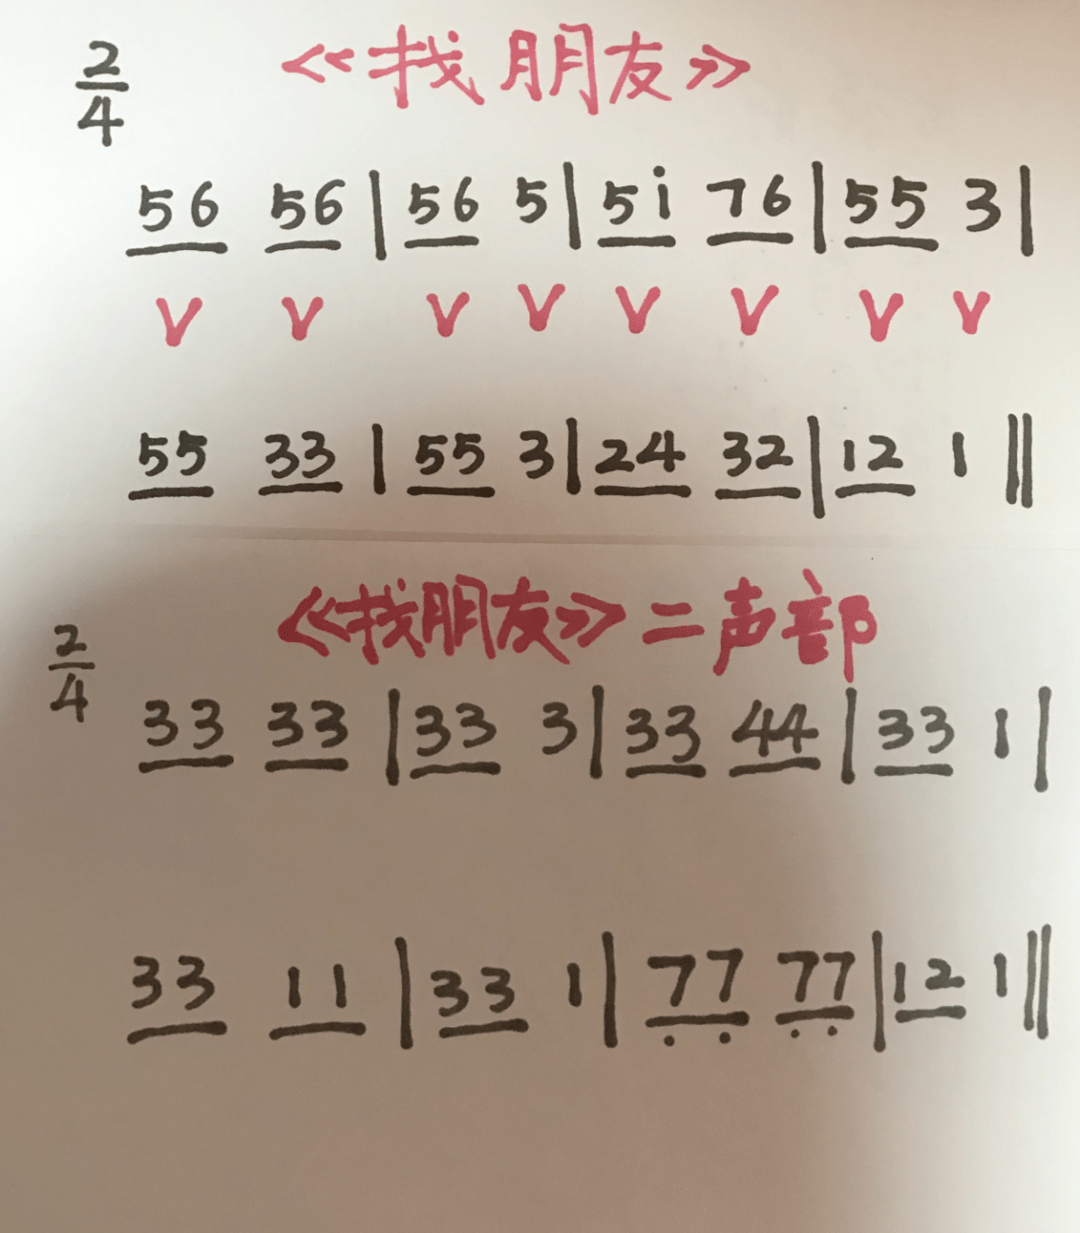 2/4 《找朋友》
56 56 | 56 5 | 5i 76 | 55 3 |
V V V V V V V V
55 33 | 55 3 | 24 32 | 12 1 ||
2/4 《找朋友》二声部
33 33 | 33 3 | 33 44 | 33 1 |
33 11 | 33 1 | 77 77 | 12 1 ||